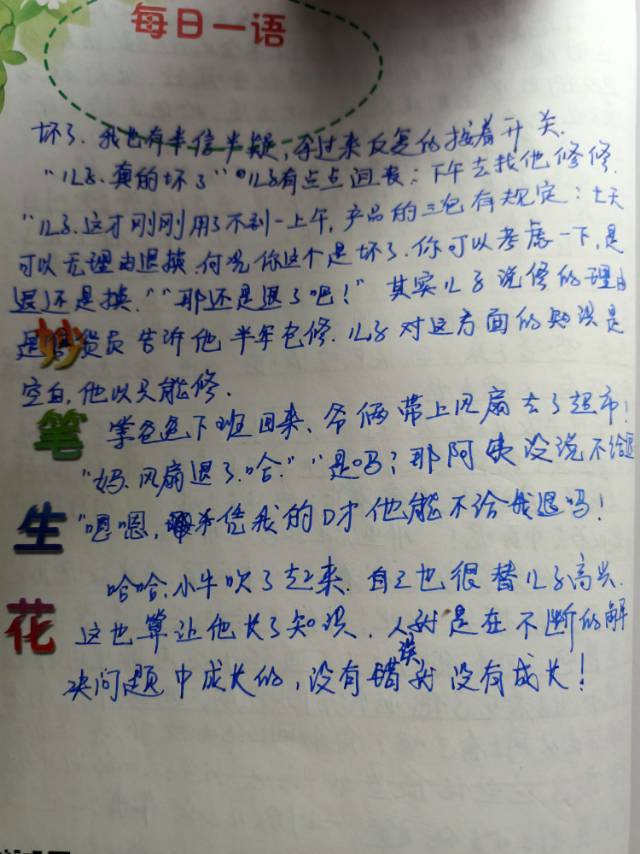 每日一语
坏了。我也有半信半疑,拿过来反复的按着开关。
"儿子.真的坏了""儿子有点点沮丧:下午去找他修修.
"儿子.这才刚刚用了不到一上午,产品的三包有规定:七天
可以无理由退换.何况你这个是坏了.你可以考虑一下,是
退还是换.""那还是退了吧!"其实儿子说修的理由
是售货员告诉他半年包修.儿子对这方面的知识是
空白,他以为只能修.
等爸爸下班回来、爷俩带上风扇去了超市!
"妈.风扇退了.哈.""是吗?那阿姨没说不给退
"嗯嗯,凭我的口才他能不给我退吗!
哈哈.小牛吹了起来.自己也很替儿子高兴.
这也算让他长了知识.人都是在不断的解
决问题中成长的,没有错误就没有成长!
妙
笔
生
花